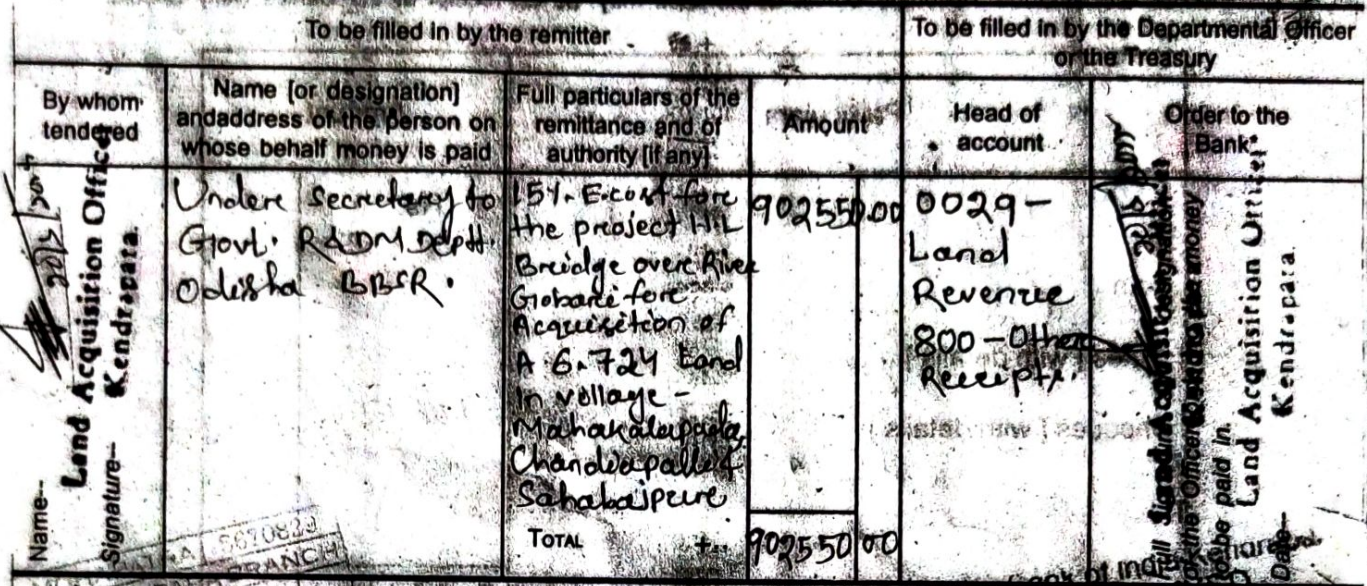 To be filled in by the remitter
To be filled in by the Departmental Officer
or the Treasury
By whom
tendered
Name [or designation]
andaddress of the person on
whose behalf money is paid
Full particulars of the
remittance and of
authority [if any]
Amount
Head of
account
Order to the
Bank
Name--
Signature--
Land Acquisition Officer
Kendrapara.
Undere Secretary to
Govt. R&DM Deptt.
Odisha BBSR.
15% E.cost fore
the project H.L
Breidge overe River
Gobarei fore
Acquisition of
A 6.724 Land
in village -
Mahakalapada,
Chandiapalli &
Sahabajpure
902550.00
0029-
Land
Revenue
800-Other
Receipts.
TOTAL
902550 00
to be paid in.
Date--
Land Acquisition Officer
Kendrapara.
BRANCH